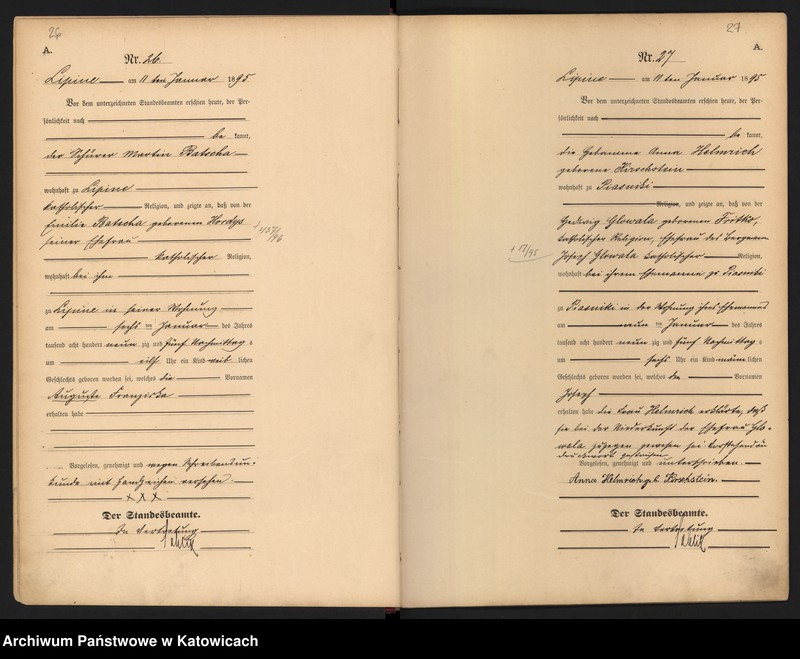 26
A.
Nr. 26
Lipine am 11 ten Januar 1895
Vor dem unterzeichneten Standesbeamten erschien heute, der Per-
sönlichkeit nach
be kannt,
der Schürer Martin Batscha
wohnhaft zu Lipine
katholischer Religion, und zeigte an, daß von der
Emilie Batscha geborenen Hordys
seiner Ehefrau
katholischer Religion,
wohnhaft bei ihm
zu Lipine in seiner Wohnung
am sechs ten Januar des Jahres
tausend acht hundert neun zig und fünf Nachmittag s
um eilf Uhr ein Kind weib lichen
Geschlechts geboren worden sei, welches die Vornamen
Auguste Franziska
erhalten habe
Vorgelesen, genehmigt und wegen Schreibensun-
kunde mit Handzeichen versehen.
XXX
Der Standesbeamte.
In Vertretung
27
A.
Nr. 27
Lipine am 11 ten Januar 1895
Vor dem unterzeichneten Standesbeamten erschien heute, der Per-
sönlichkeit nach
be kannt,
die Hebamme Anna Helmrich
geborene Kirschstein
wohnhaft zu Piasniki
Religion, und zeigte an, daß von der
Hedwig Glowala geborenen
katholischer Religion, Ehefrau des Bergmann
Joseph Glowala katholischer Religion,
+ 17/95
wohnhaft bei ihrem Ehemanne zu Piasniki
zu Piasniki in der Wohnung ihres Ehemannes
am neun ten Januar des Jahres
tausend acht hundert neun zig und fünf Nachmittag s
um sechs Uhr ein Kind männ lichen
Geschlechts geboren worden sei, welches den Vornamen
Joseph
erhalten habe die Frau Helmrich erklärte, daß
sie bei der Niederkunft der Ehefrau Glo-
wala zugegen gewesen sei. Vorstehend ein
Druckwort gestrichen.
Vorgelesen, genehmigt und unterschrieben.
Anna Helmrich geb. Kirschstein.
Der Standesbeamte.
In Vertretung
Archiwum Państwowe w Katowicach